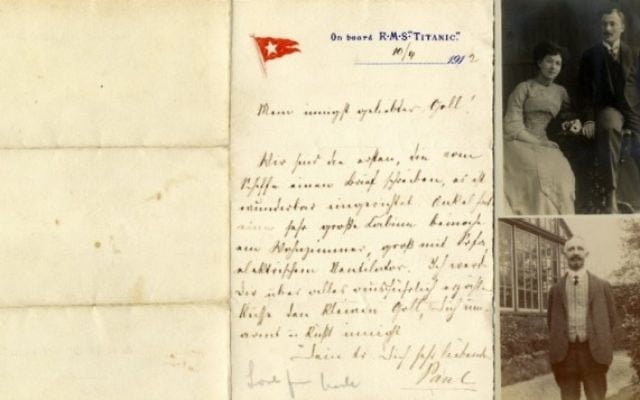 On board R·M·S "TITANIC."
10/4 1912
Mein innigst geliebter, Goll!
Wir sind die ersten, die vom
Schiffe einen Brief schreiben, es ist
wunderbar eingerichtet. Onkel hat
eine sehr große Cabine beinahe
ein Wohnzimmer, groß mit Sofa,
elektrischem Ventilator. Ich werde
Dir über alles ausführlich erzählen
Küsse den kleinen Goll, Dich um-
armt u küßt innigst
Dein tr. Dich sehr liebender
Paul
Love from